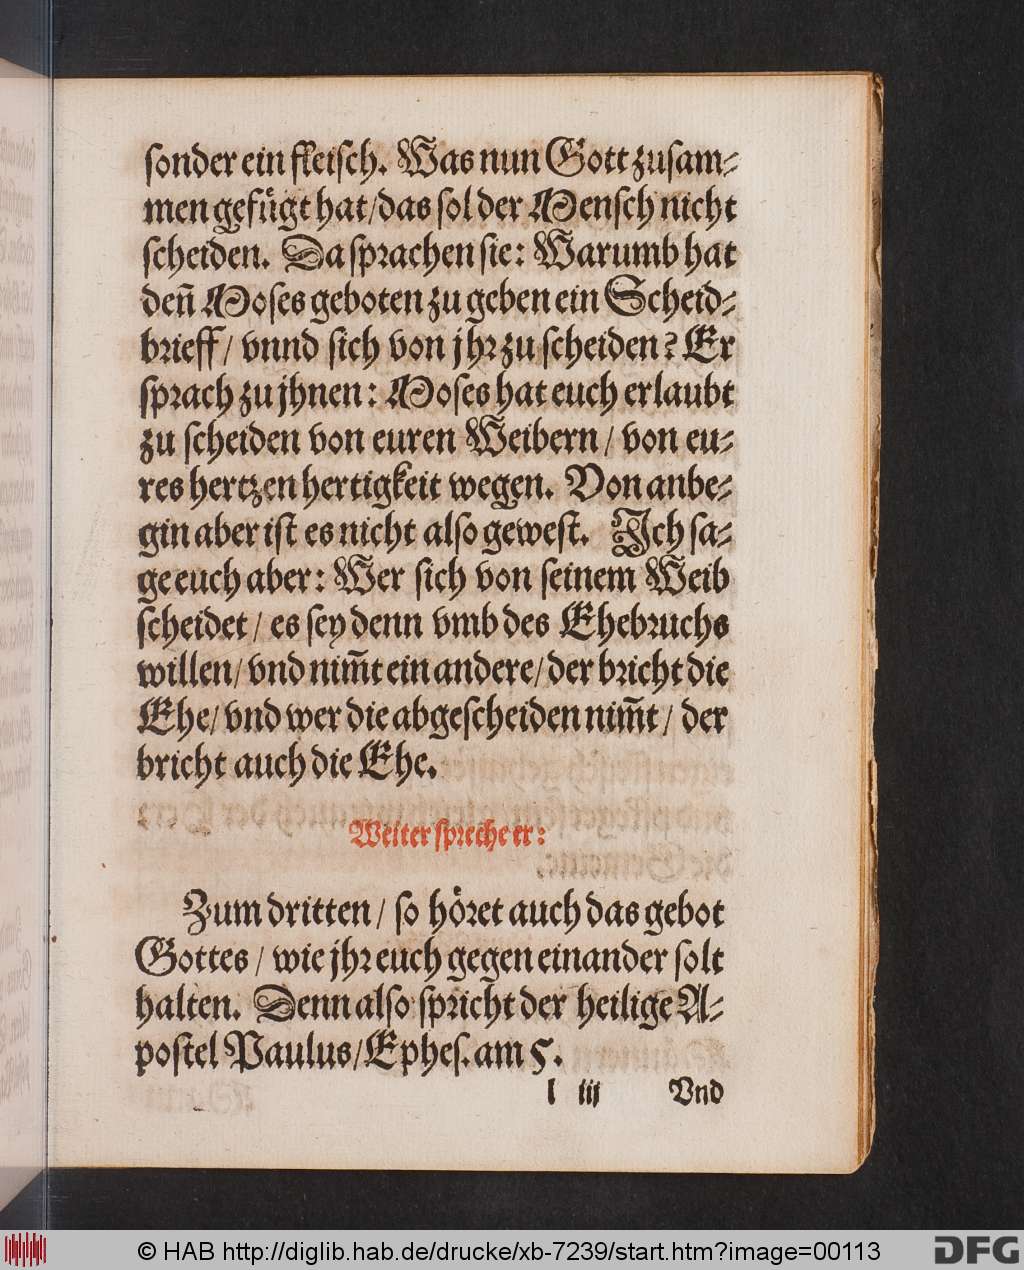 sonder ein fleisch. Was nun Gott zusam⸗
men gefůgt hat/das sol der Mensch nicht
scheiden. Da sprachen sie: Warumb hat
deñ Moses geboten zu geben ein Scheid⸗
brieff/ vnnd sich von jhr zu scheiden? Er
sprach zu jhnen: Moses hat euch erlaubt
zu scheiden von euren Weibern/ von eu⸗
res hertzen hertigkeit wegen. Von anbe⸗
gin aber ist es nicht also gewest. Ich sa⸗
ge euch aber: Wer sich von seinem Weib
scheidet/ es sey denn vmb des Ehebruchs
willen/ vnd nim̃t ein andere/ der bricht die
Ehe/ vnd wer die abgescheiden nim̃t/ der
bricht auch die Ehe.
Weiter spreche er:
Zum dritten/ so hoͤret auch das gebot
Gottes/ wie jhr euch gegen einander solt
halten. Denn also spricht der heilige A⸗
postel Paulus/Ephes. am 5.
l iij Vnd
© HAB http://diglib.hab.de/drucke/xb-7239/start.htm?image=00113
DFG